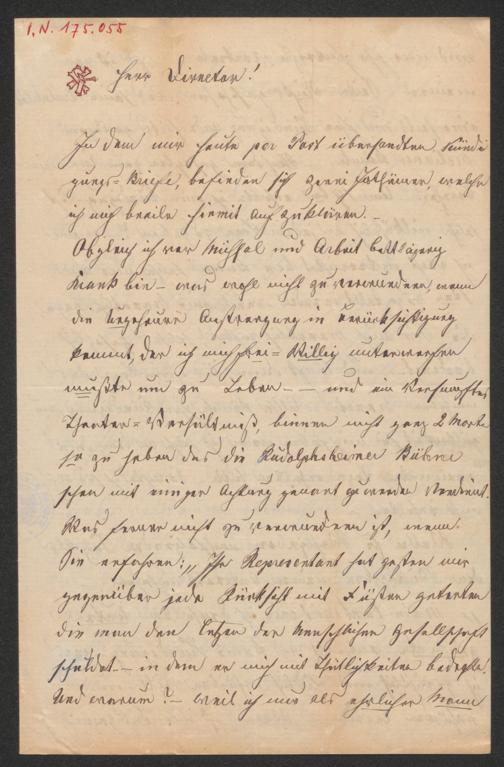 I.N. 175.055
Herr Director!
In dem mir heute per Post übersandten Kündi
gungs=Briefe, befinden sich zwei Irthümer, welche
ich mich beeile hiemit aufzuklären. –
Obgleich ich vor Mühsal und Arbeit bettlägerig
krank bin – was wohl nicht zu verwundern, wenn
die ungeheure Anstrengung in Berücksichtigung
kommt, der ich mich frei=willig unterwerfen
mußte um zu Leben – – und ein
Theater=Verhältniß, binnen nicht ganz 2 Monte
so zu heben das die Rudolphsheimer Bühne
schon mit einiger Achtung genant zu werden verdient.
Was ferner nicht zu verwundern ist, wenn
Sie erfahren: „Ihr Representant hat gestern mir
gegenüber jede Rücksicht mit Füßen getreten
die man den Letzten der Menschlichen Gesellschaft
schuldet – in dem er mich mit Thätlichkeiten bedrohte.
Und warum? – weil ich nur als ehrlicher Mann